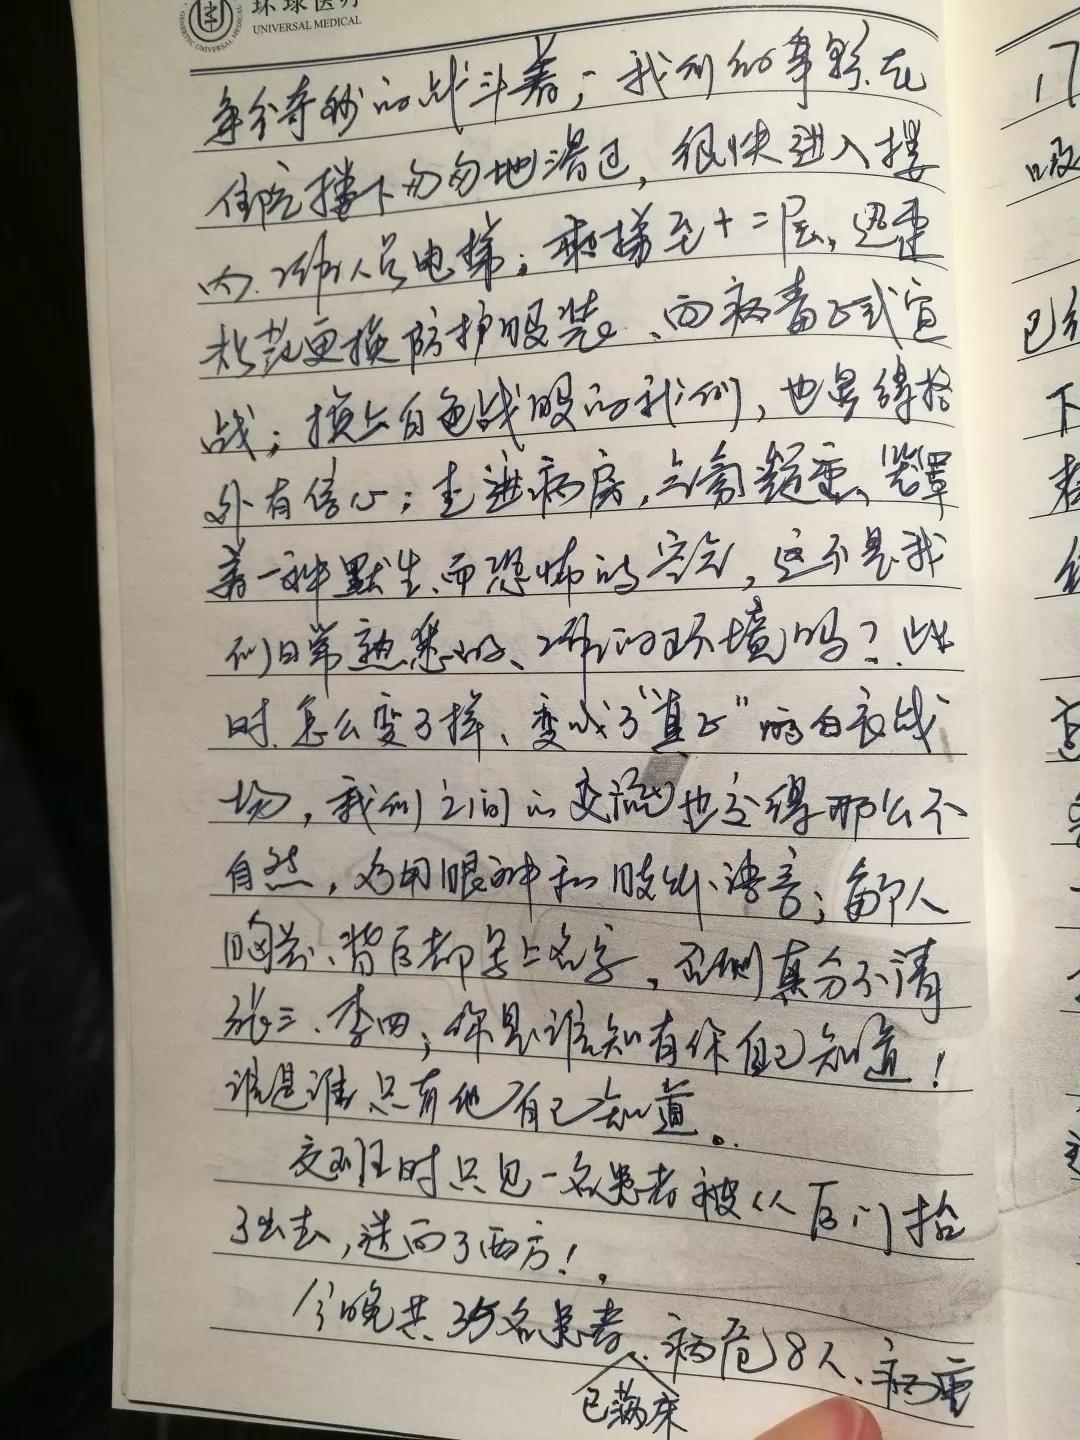 环球医疗
UNIVERSAL MEDICAL
争分夺秒的战斗着；我们的车影在
住院楼下匆匆地滑过，很快进入楼
内、工作人员电梯；乘梯至十二层，迅速
规范更换防护服装、向病毒正式宣
战；换上白色战服的我们，也显得格
外有信心；走进病房，气氛凝重、笼罩
着一种默生、而恐怖的空气，这不是我
们日常熟悉的、工作的环境吗？此
时、怎么变了样、变成了"真正"的白衣战
场，我们之间的交流也变得那么不
自然，多用眼神和肢体、语言；每个人
胸前、背后都写上名字，否则真分不清
张三、李四；你是谁知有你自己知道！
谁是谁、只有他自己知道。
交班时只见一名患者被从后门抬
了出去，送向了西方！
今晚共35名患者、病危18人、病重
已满床
17
吸
已经
下